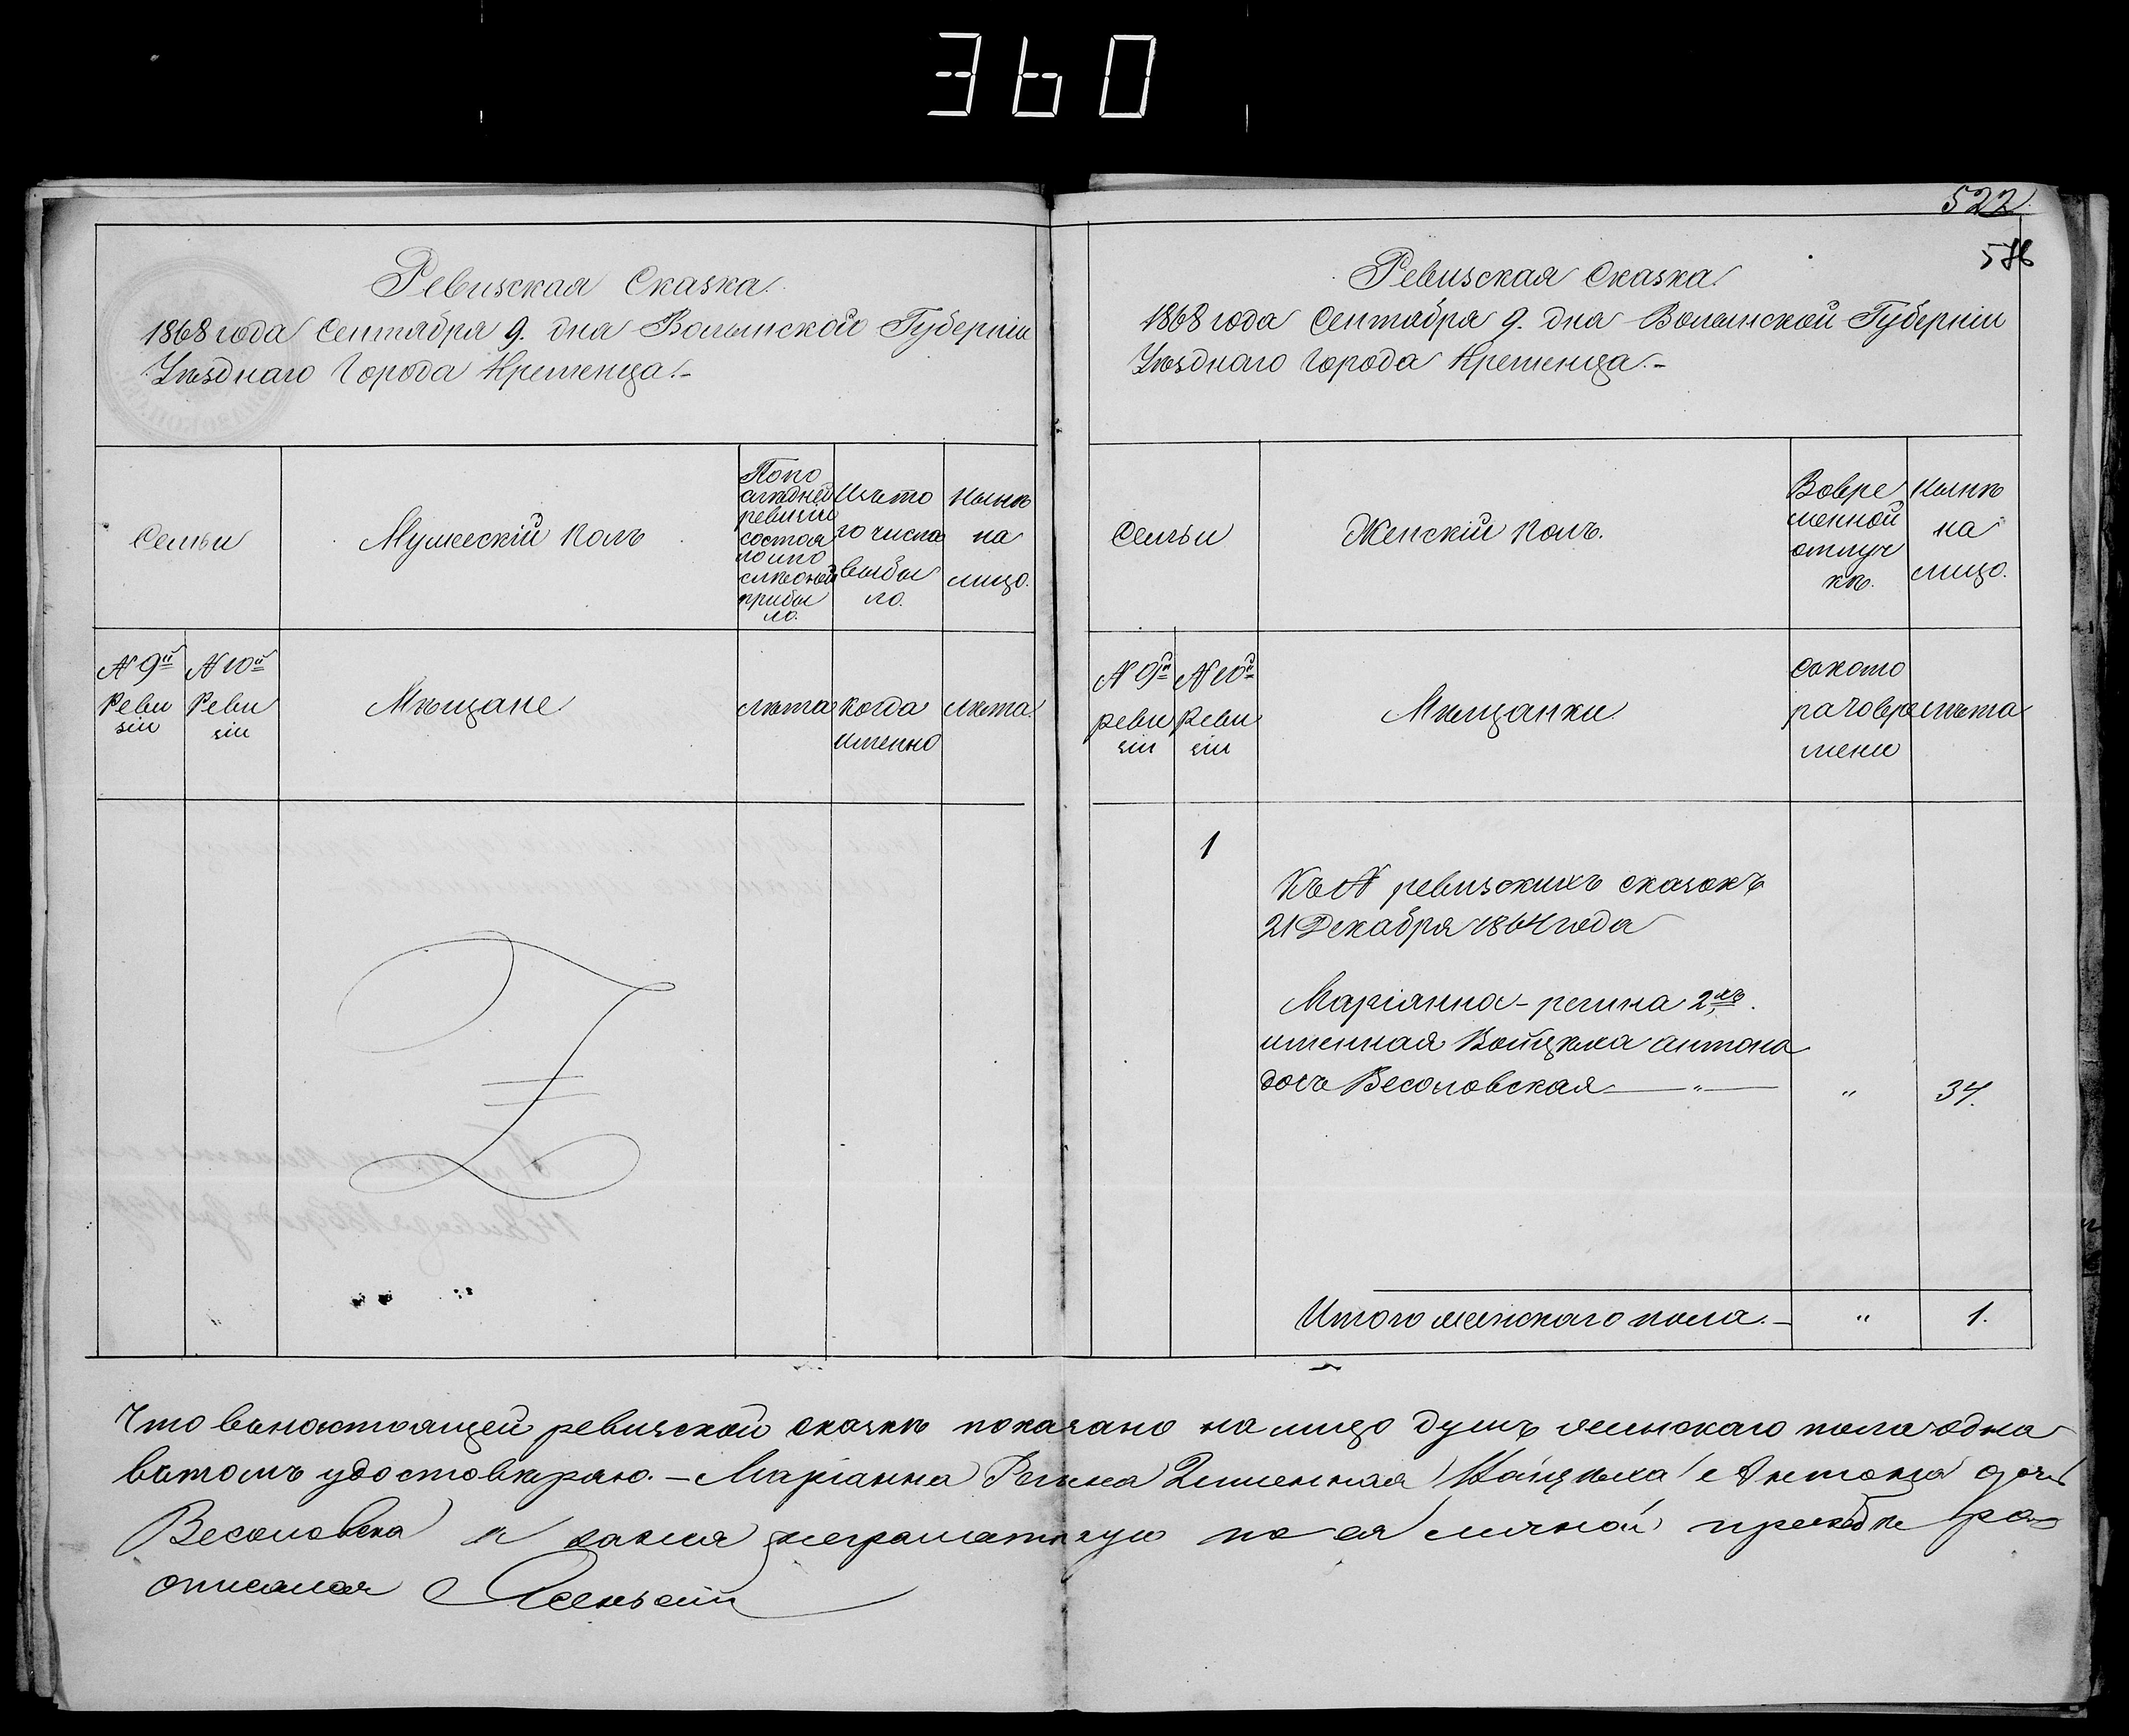 360
522
586
Ревизская Сказка.
1868 года Сентября 9. дня Волынской Губерніи
Уѣзднаго Города Кременца.-
Семьи
Мужескій Полъ
По по
слѣдней
ревизіи
состоя
ло и по
слѣ оной
прибы
ло.
Изъ то
го числа
выбы
ло.
Нынѣ
на
лицо.
№ 9й
Реви
зіи
№ 10й
Реви
зіи
Мѣщане
лѣта
когда
именно
лѣта
Ревизская Сказка.
1868 года Сентября 9. дня Волынской Губерніи
Уѣзднаго Города Кременца.-
Семьи
Женскій Полъ.
Во вре
менной
отлуч
кѣ.
Нынѣ
на
лицо.
№ 9й
реви
зіи
№ 10й
Реви
зіи
Мѣщанки
съ кото
раго вре
мени
лѣта
1
Къ № ревизскихъ сказокъ
21 Декабря 1864 года
Маріанна-регина 2хъ
именная Войцѣха Антона
дочь Весоловская — " — " 34.
Итого женскаго пола.- " 1.
Что въ настоящей ревизской сказкѣ показано на лицо душъ женскаго пола одна
въ томъ удостовѣряю.- Маріанна Регина 2 именная Войцѣха Антона дочь
Весоловска а за нея неграмотную по ея личной прозьбѣ ро-
списался